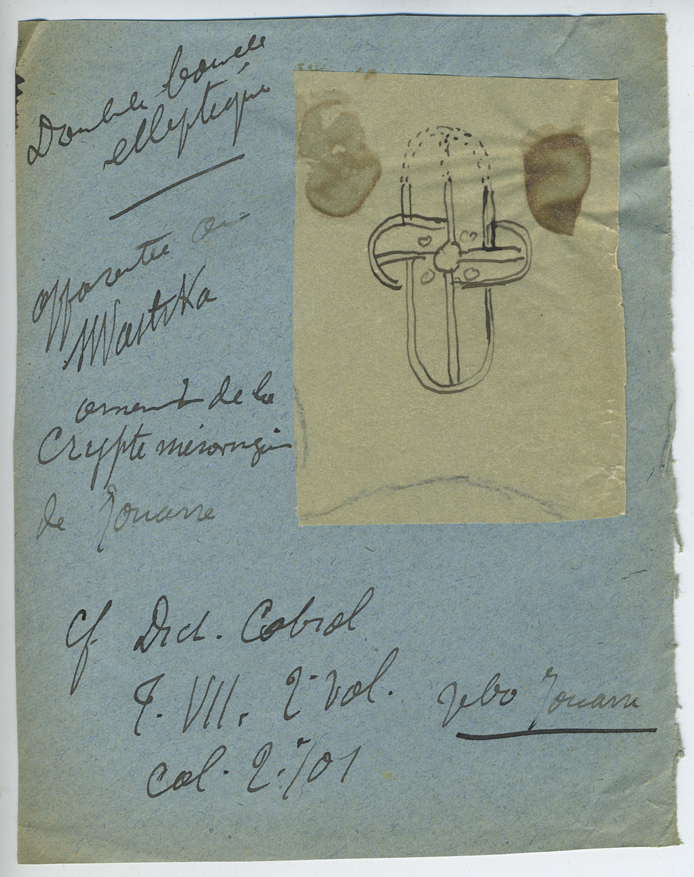 Double boucle
elleptique
apparentée au
swastika
ornement de la
Crypte mérovingien
de Jouarre
cf Dict. Cabrol
T. VII. 2e vol.
vebo Jouarre
col. 2.701